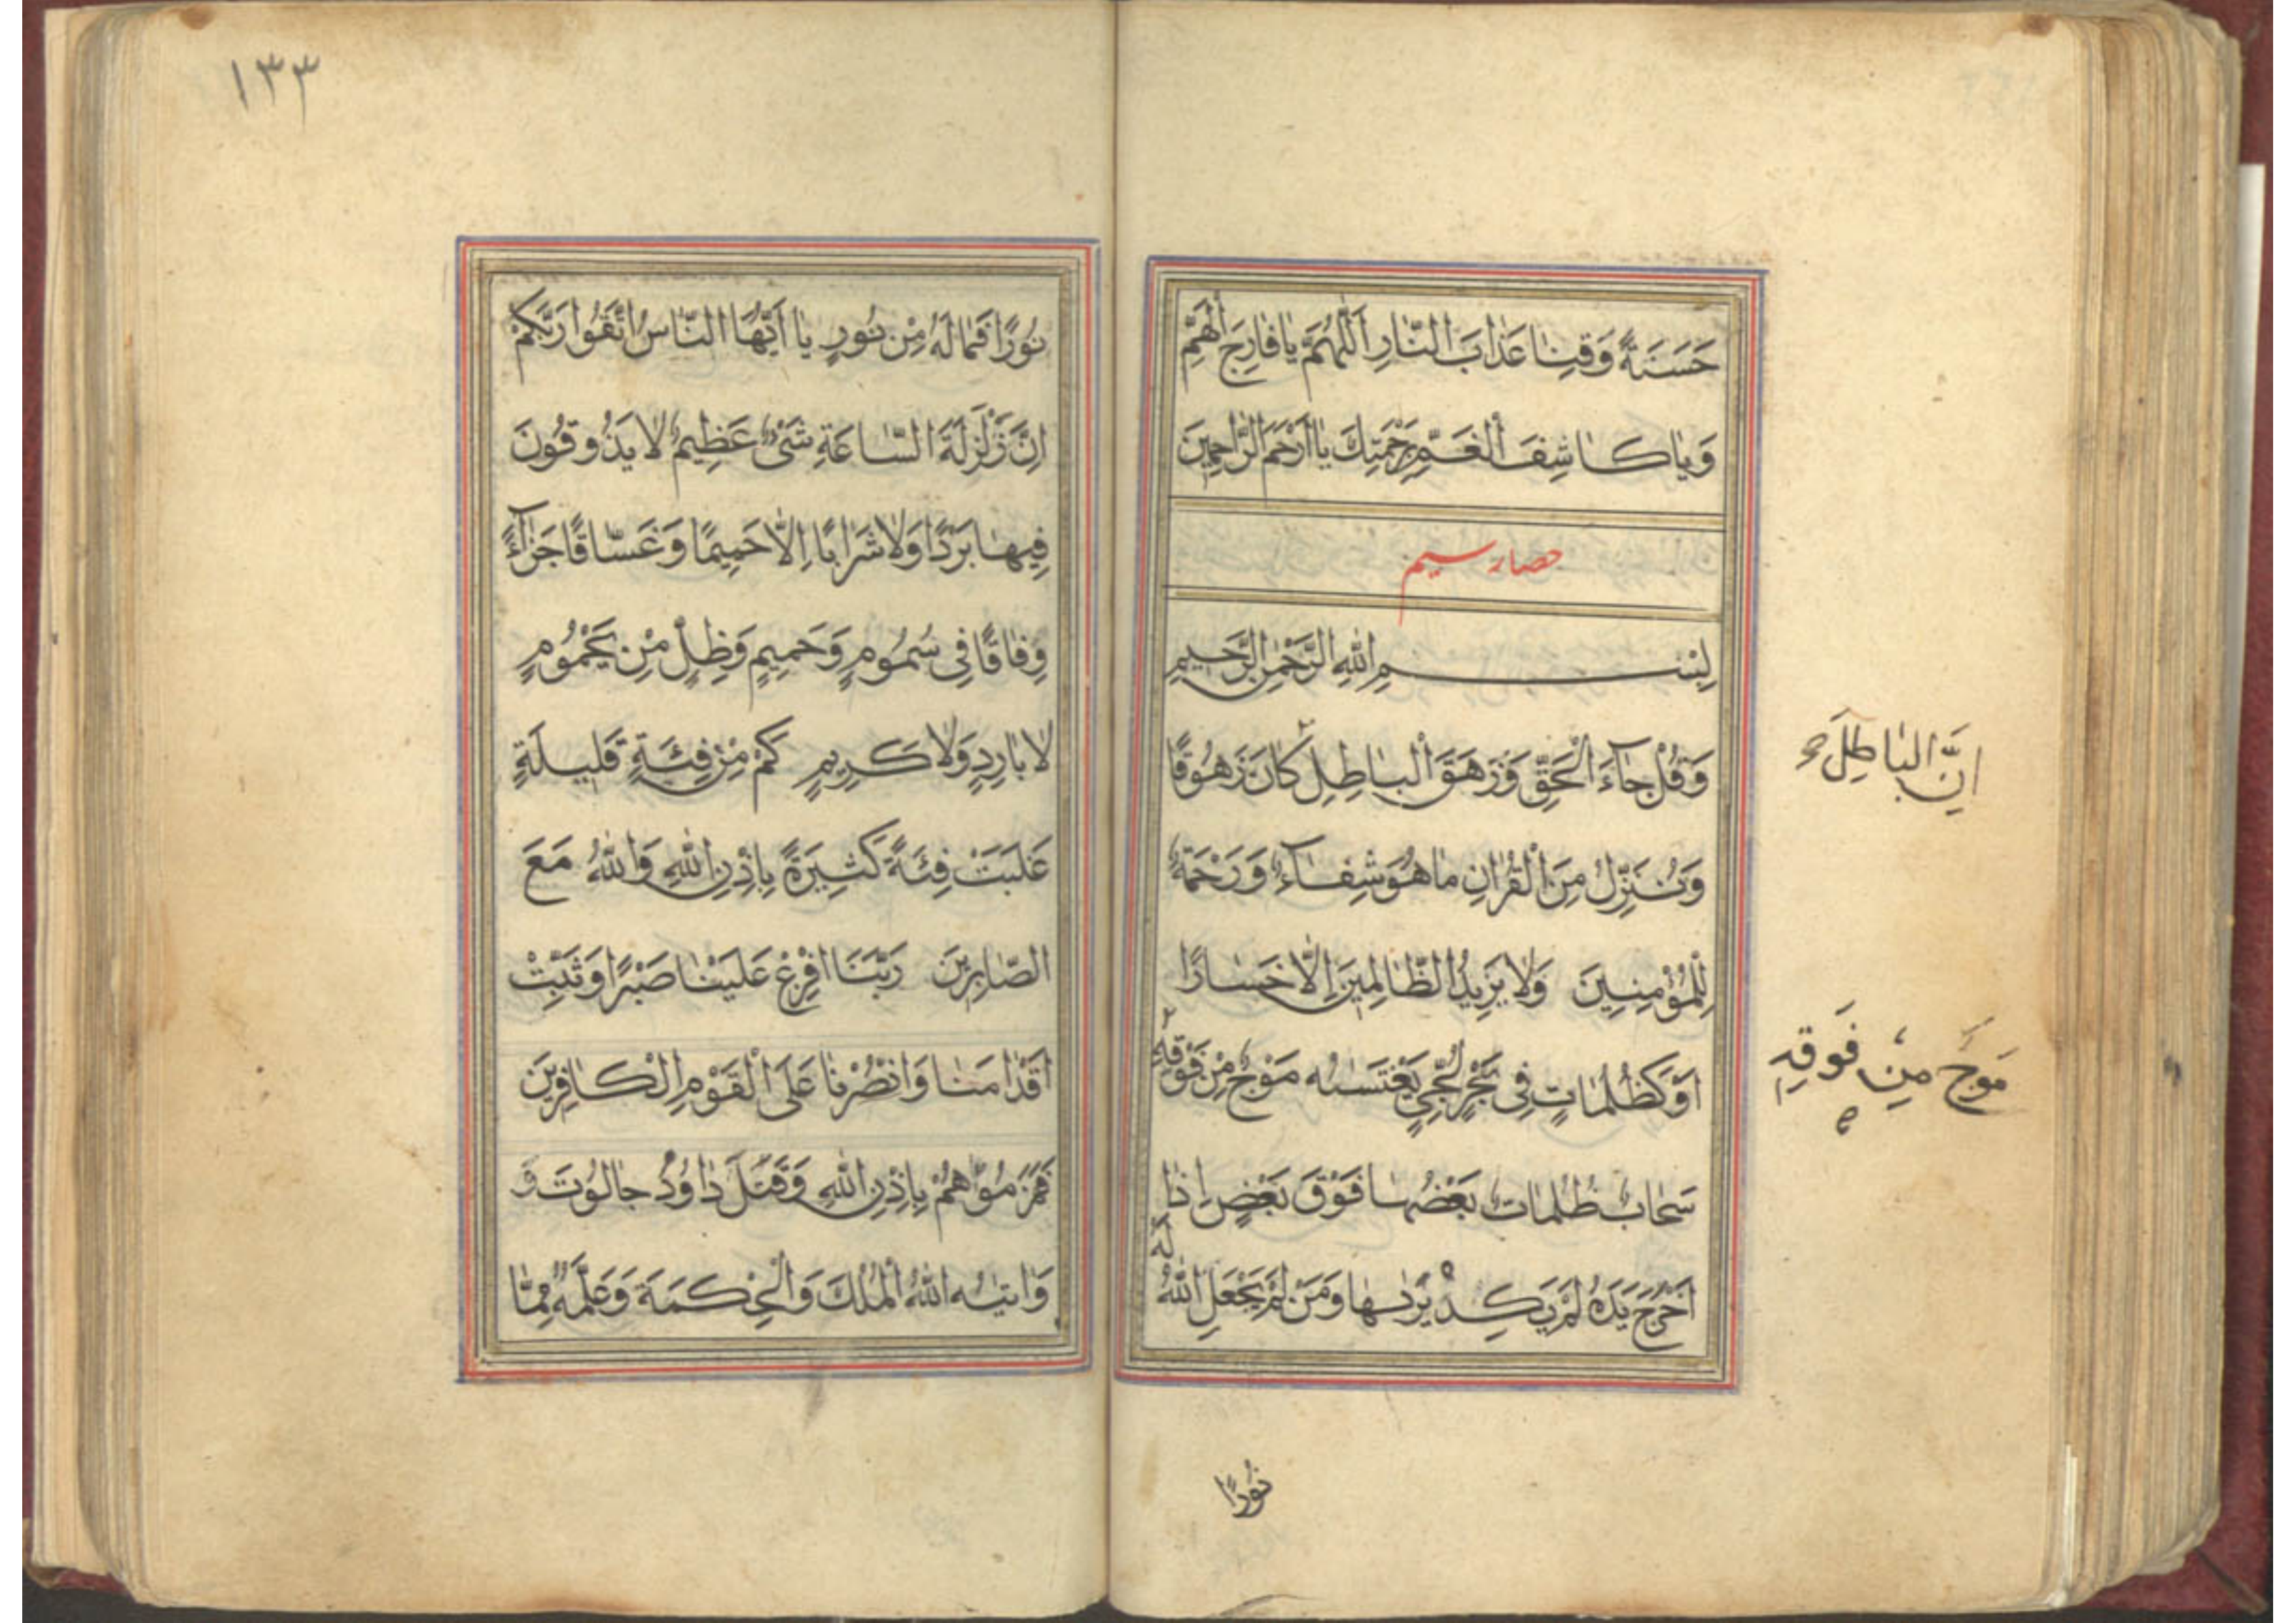 حَسَنَةً وَقِنَا عَذَابَ النَّارِ اَللّٰهُمَّ يَا فَارِجَ الْهَمِّ
وَيَا كَاشِفَ الْغَمِّ بِرَحْمَتِكَ يَا اَرْحَمَ الرَّاحِمِينَ
حصار سیم
بِسْمِ اللهِ الرَّحْمٰنِ الرَّحِيمِ
وَقُلْ جَآءَ الْحَقِّ وَزَهَقَ الْبَاطِلِ كَانَ زَهُوقًا
اِنَّ الْبَاطِلَ صح
وَنُنَزِّلُ مِنَ الْقُرْاٰنِ مَا هُوَ شِفَآءٌ وَرَحْمَةٌ
لِلْمُؤْمِنِينَ وَلَا يَزِيدُ الظَّالِمِينَ اِلَّا خَسَارًا
اَوْ كَظُلُمَاتٍ فِى بَحْرٍ لُجِّيٍ يَغْتَسٰيهُ مَوْجٌ مِنْ فَوْقِهِ
مَوجٌ مِن فَوقِهِ
سَحَابٌ ظُلُمَاتٌ بَعْضُهَا فَوْقَ بَعْضٍ اِذَا
اَخْرَجَ يَدَهُ لَمْ يَكِدْ يَرٰيهَا وَمَنْ لَمْ يَجْعَلِ اللهُ لَهُ
نُورًا
١٣٣
نُورًا فَمَا لَهُ مِنْ نُورٍ يَا اَيُّهَا النَّاسُ اتَّقُوا رَبَّكُمْ
اِنَّ زَلْزَلَةَ السَّاعَةِ شَىْءٌ عَظِيمٌ لَا يَذُوقُونَ
فِيهَا بَرْدًا وَلَا شَرَابًا اِلَّا حَمِيمًا وَغَسَّاقًا جَزَآءً
وِفَاقًا فِى سُمُومٍ وَحَمِيمٍ وَظِلٍّ مِنْ يَحْمُومٍ
لَا بَارِدٍ وَلَا كَرِيمٍ كَمْ مِنْ فِئَةٍ قَلِيلَةٍ
غَلَبَتْ فِئَةً كَثِيرَةً بِاِذْنِ اللهِ وَاللهُ مَعَ
الصَّابِرِينَ رَبَّنَا اَفْرِغْ عَلَيْنَا صَبْرًا وَثَبِّتْ
اَقْدَامَنَا وَانْصُرْنَا عَلَى الْقَوْمِ الْكَافِرِينَ
فَهَزَمُوهُمْ بِاِذْنِ اللهِ وَقَتَلَ دَاوُدُ جَالُوتَ وَ
وَاٰتيٰهُ اللهُ الْمُلْكَ وَالْحِكْمَةَ وَعَلَّمَهُ مِمَّا